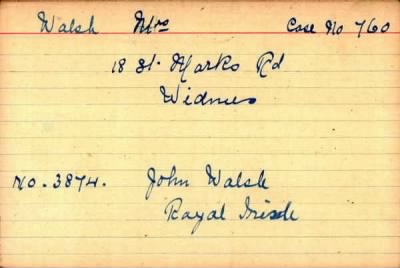 Walsh Mrs Case No 760
18 St. Marks Rd
Widnes
No. 3874. John Walsh
Royal Irish